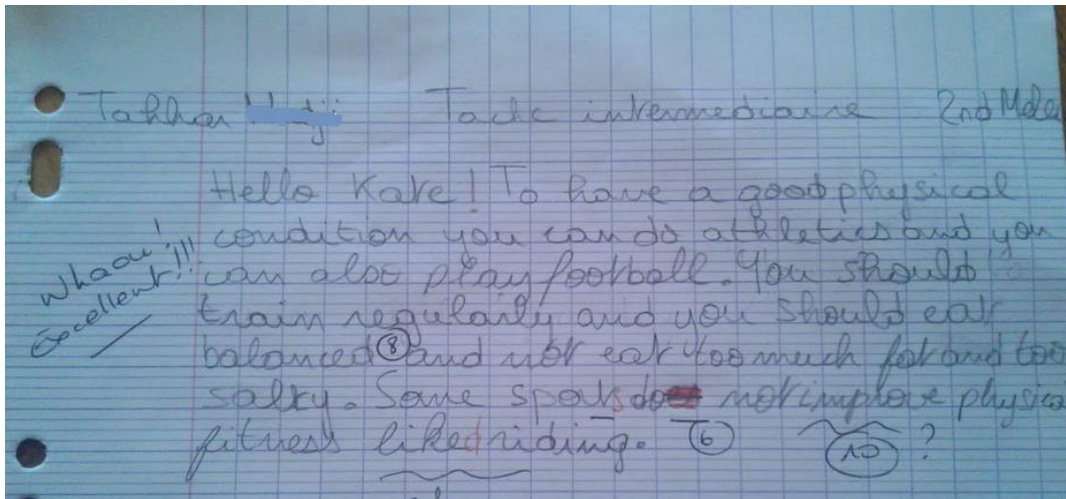 Tache intermediaire 2nd
Hello Kate! To have a good physical
condition you can do athletics and you
can also play football. You should
train regularly and you should eat
balanced (8) and not eat too much fat and too
salty. Some sports do not improve physica
fitness like riding. (6) (10) ?
Whaou!
Excellent!!!